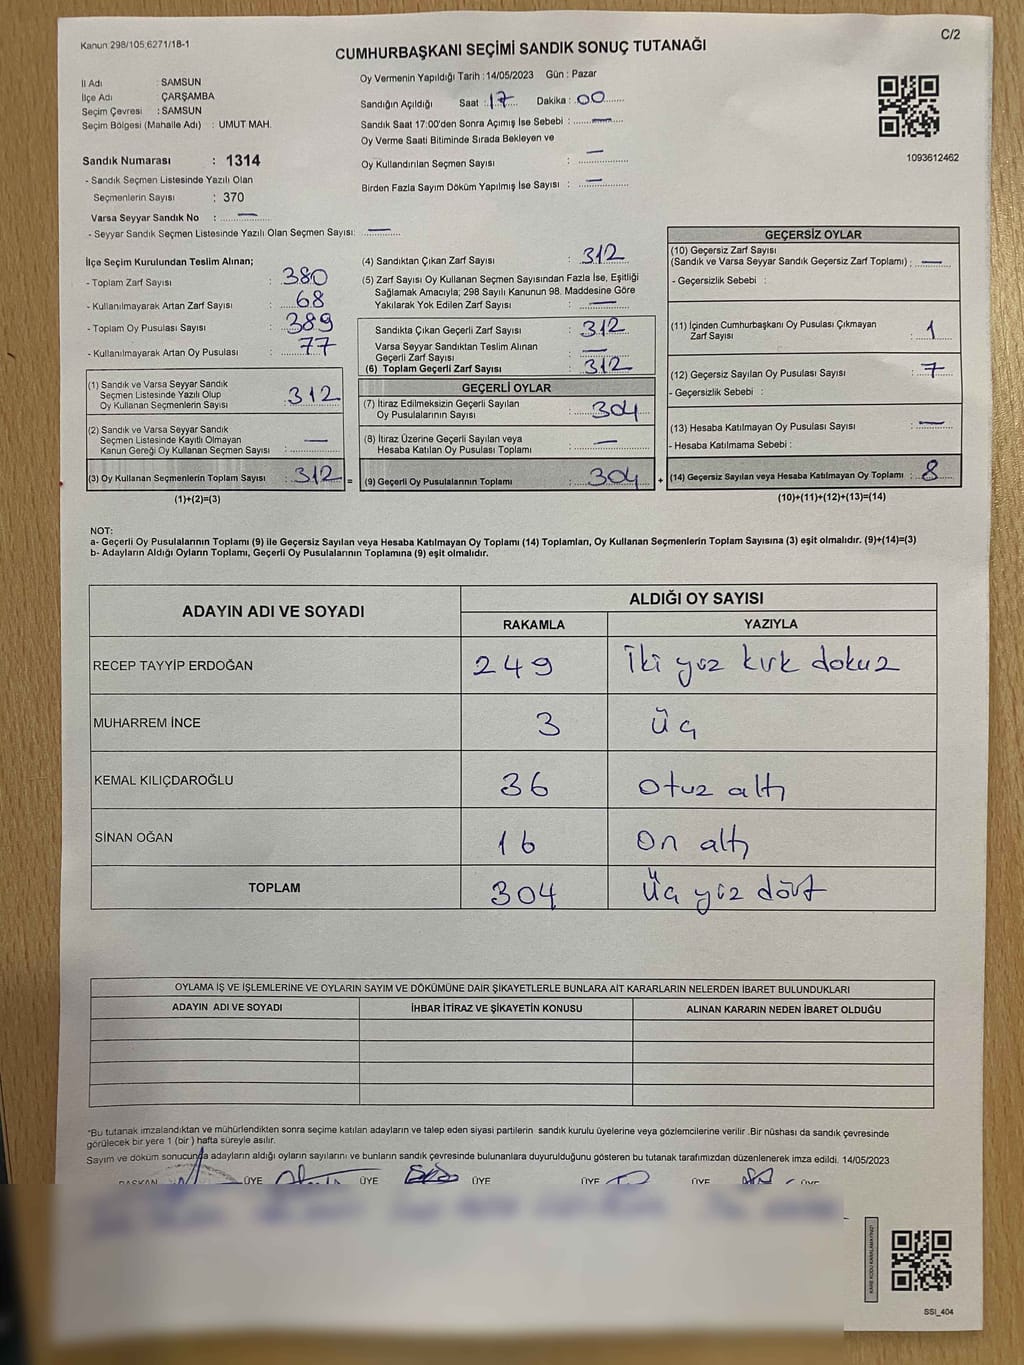 Kanun 298/105;6271/18-1
C/2
CUMHURBAŞKANI SEÇİMİ SANDIK SONUÇ TUTANAĞI
İl Adı : SAMSUN
İlçe Adı : ÇARŞAMBA
Seçim Çevresi : SAMSUN
Seçim Bölgesi (Mahalle Adı) : UMUT MAH.
Sandık Numarası : 1314
- Sandık Seçmen Listesinde Yazılı Olan
Seçmenlerin Sayısı : 370
Varsa Seyyar Sandık No : —
- Seyyar Sandık Seçmen Listesinde Yazılı Olan Seçmen Sayısı: —
Oy Vermenin Yapıldığı Tarih : 14/05/2023 Gün : Pazar
Sandığın Açıldığı Saat : 17 Dakika : 00
Sandık Saat 17:00'den Sonra Açımış İse Sebebi : —
Oy Verme Saati Bitiminde Sırada Bekleyen ve
Oy Kullandırılan Seçmen Sayısı : —
Birden Fazla Sayım Döküm Yapılmış İse Sayısı : —
1093612462
İlçe Seçim Kurulundan Teslim Alınan;
- Toplam Zarf Sayısı : 380
- Kullanılmayarak Artan Zarf Sayısı : 68
- Toplam Oy Pusulası Sayısı : 389
- Kullanılmayarak Artan Oy Pusulası : 77
(1) Sandık ve Varsa Seyyar Sandık
Seçmen Listesinde Yazılı Olup
Oy Kullanan Seçmenlerin Sayısı : 312
(2) Sandık ve Varsa Seyyar Sandık
Seçmen Listesinde Kayıtlı Olmayan
Kanun Gereği Oy Kullanan Seçmen Sayısı : —
(3) Oy Kullanan Seçmenlerin Toplam Sayısı : 312 =
(1)+(2)=(3)
(4) Sandıktan Çıkan Zarf Sayısı : 312
(5) Zarf Sayısı Oy Kullanan Seçmen Sayısından Fazla İse, Eşitliği
Sağlamak Amacıyla; 298 Sayılı Kanunun 98. Maddesine Göre
Yakılarak Yok Edilen Zarf Sayısı : —
Sandıkta Çıkan Geçerli Zarf Sayısı : 312
Varsa Seyyar Sandıktan Teslim Alınan
Geçerli Zarf Sayısı : —
(6) Toplam Geçerli Zarf Sayısı : 312
GEÇERLİ OYLAR
(7) İtiraz Edilmeksizin Geçerli Sayılan
Oy Pusulalarının Sayısı : 304
(8) İtiraz Üzerine Geçerli Sayılan veya
Hesaba Katılan Oy Pusulası Toplamı : —
(9) Geçerli Oy Pusulalarının Toplamı : 304 +
GEÇERSİZ OYLAR
(10) Geçersiz Zarf Sayısı
(Sandık ve Varsa Seyyar Sandık Geçersiz Zarf Toplamı) : —
- Geçersizlik Sebebi :
(11) İçinden Cumhurbaşkanı Oy Pusulası Çıkmayan
Zarf Sayısı : 1
(12) Geçersiz Sayılan Oy Pusulası Sayısı : 7
- Geçersizlik Sebebi :
(13) Hesaba Katılmayan Oy Pusulası Sayısı : —
- Hesaba Katılmama Sebebi :
(14) Geçersiz Sayılan veya Hesaba Katılmayan Oy Toplamı : 8
(10)+(11)+(12)+(13)=(14)
NOT:
a- Geçerli Oy Pusulalarının Toplamı (9) ile Geçersiz Sayılan veya Hesaba Katılmayan Oy Toplamı (14) Toplamları, Oy Kullanan Seçmenlerin Toplam Sayısına (3) eşit olmalıdır. (9)+(14)=(3)
b- Adayların Aldığı Oyların Toplamı, Geçerli Oy Pusulalarının Toplamına (9) eşit olmalıdır.
ADAYIN ADI VE SOYADI ALDIĞI OY SAYISI
RAKAMLA YAZIYLA
RECEP TAYYİP ERDOĞAN 249 İki yüz kırk dokuz
MUHARREM İNCE 3 üç
KEMAL KILIÇDAROĞLU 36 otuz altı
SİNAN OĞAN 16 On altı
TOPLAM 304 Üç yüz dört
OYLAMA İŞ VE İŞLEMLERİNE VE OYLARIN SAYIM VE DÖKÜMÜNE DAİR ŞİKAYETLERLE BUNLARA AİT KARARLARIN NELERDEN İBARET BULUNDUKLARI
ADAYIN ADI VE SOYADI İHBAR İTİRAZ VE ŞİKAYETİN KONUSU ALINAN KARARIN NEDEN İBARET OLDUĞU
*Bu tutanak imzalandıktan ve mühürlendikten sonra seçime katılan adayların ve talep eden siyasi partilerin sandık kurulu üyelerine veya gözlemcilerine verilir .Bir nüshası da sandık çevresinde
görülecek bir yere 1 (bir ) hafta süreyle asılır.
Sayım ve döküm sonucunda adayların aldığı oyların sayılarını ve bunların sandık çevresinde bulunanlara duyurulduğunu gösteren bu tutanak tarafımızdan düzenlenerek imza edildi. 14/05/2023
BAŞKAN ÜYE ÜYE ÜYE ÜYE ÜYE ÜYE
KARE KODU KARALAMAYINIZ!
SSI_404